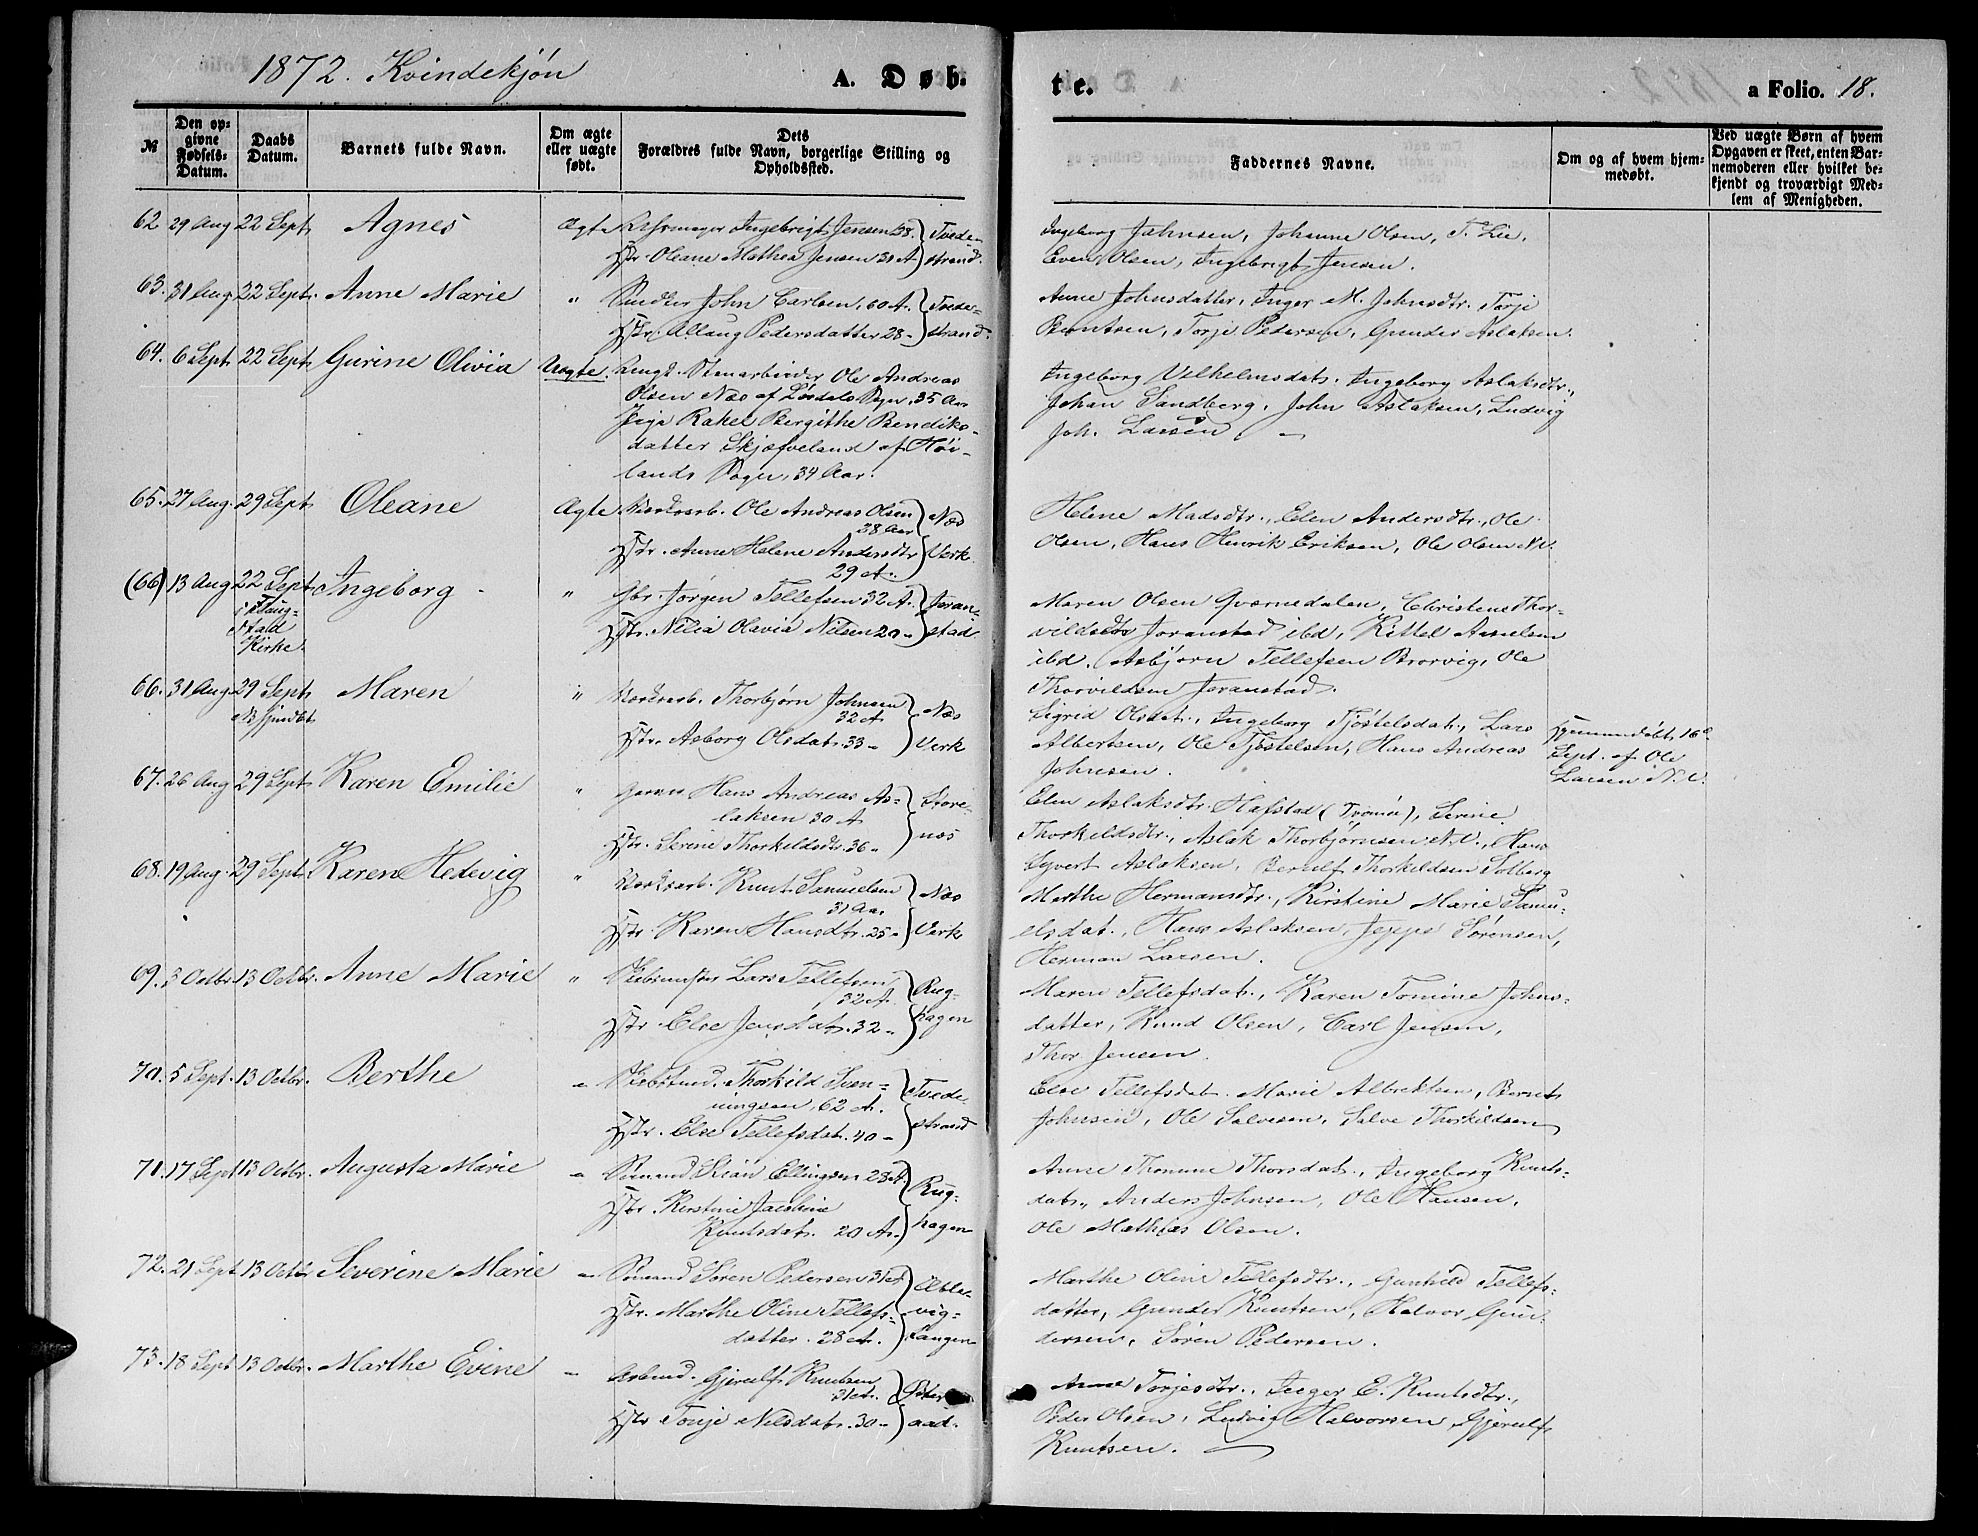 1872. Kvindekjøn
A. Døb-
te.
a Folio. 18.
№
Den op-
givne
Fødsels-
Datum.
Daabs
Datum.
Barnets fulde Navn.
Om ægte
eller uægte
født.
Dets
Forældres fulde Navn, borgerlige Stilling og
Opholdssted.
Faddernes Navne.
Om og af hvem hjem-
medøbt.
Ved uægte Børn af hvem
Opgaven er skeet, enten Bar-
nemoderen eller hvilket be-
kjendt og troværdigt Med-
lem af Menigheden.
62 29 Aug 22 Sept. Agnes Ægte Ingebrigt Jensen 38. Tvede-
Hstr. Oleane Mathea Jensen 30 A strand.
Ingeborg Johnsen, Johanne Olsen, T. Lie,
Even Olsen, Ingebrigt Jensen.
63. 31 Aug. 22 Sept. Anne Marie " John Carlsen, 60 A. Tvede-
Hstr. Allaug Pedersdatter 28 - strand.
Anne Johnsdatter, Inger M. Johnsdtr. Torje
Berntsen, Torje Pedersen, Gunder Aslaksen.
64. 6 Sept. 22 Sept. Gurine Olivia Uægte. Ungk. Stenarbeider Ole Andreas
Olsen Næs af Sogn, 35 Aar
Pige Rakel Bergithe Bendiks-
datter Skjæfveland af Høi-
lands Sogn, 34 Aar.
Ingeborg Vilhelmsdat. Ingeborg Aslaksdtr.,
Johan Sandberg, John Aslaksen, Ludvig
Joh. Larsen
65. 27 Aug. 29 Sept. Oleane Ægte Værksarb. Ole Andreas Olsen Næs
38 Aar
Hstr. Anne Helene Andersdtr Verk.
29 A.
Helene Madsdtr., Elen Andersdtr., Ole
Olsen, Hans Henrik Eriksen, Ole Olsen N.V.
(66) 13 Aug 22 Sept. Ingeborg " Gbr. Jørgen Tellefsen 32 A. Joran-
i Flaug-
stad
Kirke.
Hstr. Nilia Olavia Nilsen 20 - stad
Maren Olsen Qvernedalen, Christense Thor-
vildsdtr Joranstad ibd, Kittel Asnilsen
ibd. Asbjørn Tellefsen Brorvig, Ole
Thorvildsen Joranstad.
66. 31 Aug. 29 Sept. Maren " Værksarb. Thorbjørn Johnsen Næs
32 A
Hstr. Asborg Olsdat. 33 - Verk
Sigrid Olsdat., Ingeborg Tjøstelsdat., Lars
Albertsen, Ole Tjøstelsen, Hans Andreas
Johnsen.
Hjemmedøbt 16de
Sept. af Ole
Larsen N.V.
67. 26 Aug 29 Sept. Karen Emilie " Hans Andreas As- Store-
laksen 30 A
Hstr. Serine Thorkildsdtr. 36 - næs
Elen Aslaksdtr. Hafstad (Tromø), Serine
Thorkildsdtr., Aslak Thorbjørnsen N.V., Hans
Syvert Aslaksen, Berulf Thorkildsen Solberg
68. 19 Aug. 29 Sept. Karen Hedevig " Værksarb. Knut Samuelsen Næs
31 Aar
Hstr. Karen Hansdtr. 25 - Verk
Marthe Hermansdtr., Kirstine Marie Samu-
elsdat., Hans Aslaksen, Jeppe Sørensen,
Herman Larsen.
69. 3 Octbr. 13 Octbr. Anne Marie " Lars Tellefsen, Rug-
32 A.
Hstr. Else Jensdat. 32 - hagen
Maren Tellefsdat., Karen Tomine Johns-
datter, Knud Olsen, Carl Jensen,
Thor Jensen.
70. 5 Sept. 13 Octbr. Berthe - Thorkild Sven- Tvede-
ningsen, 62 A.
Hstr. Else Tellefsdat. 40 - strand
Else Tellefsdat. Marie Albrektsen, Bernt
Johnsen, Ole Salvesen, Salve Thorkildsen
71. 17 Sept 13 Octbr. Augusta Marie - Sømand Ellingsen 28 A Rug-
Hstr. Kirstine Jacobine
Knutsdat. 20 A. hagen
Anne Thomine Thorsdat., Ingeborg Knuts-
dat., Anders Johnsen, Ole Hansen,
Ole Mathias Olsen.
72. 21 Sept 13 Octbr Severine Marie - Sømand Søren Pedersen 31 A
Hstr. Marthe Oline Tellefs- vig-
datter. 28 A. Tangen
Marthe Oline Tellefsdtr., Gunhild Tellefs-
datter, Gunder Knutsen, Halvor Gun-
dersen, Søren Pedersen.
73. 18 Sept 13 Octbr. Marthe Evine - Arbmd. Gjerulf Knutsen
31 A.
Hstr Tonje Nilsdat. 30 - aad.
Anne Torjesdtr., Inger E. Knutsdtr.,
Peder Olsen, Ludvig Halvorsen, Gjerulf
Knutsen.